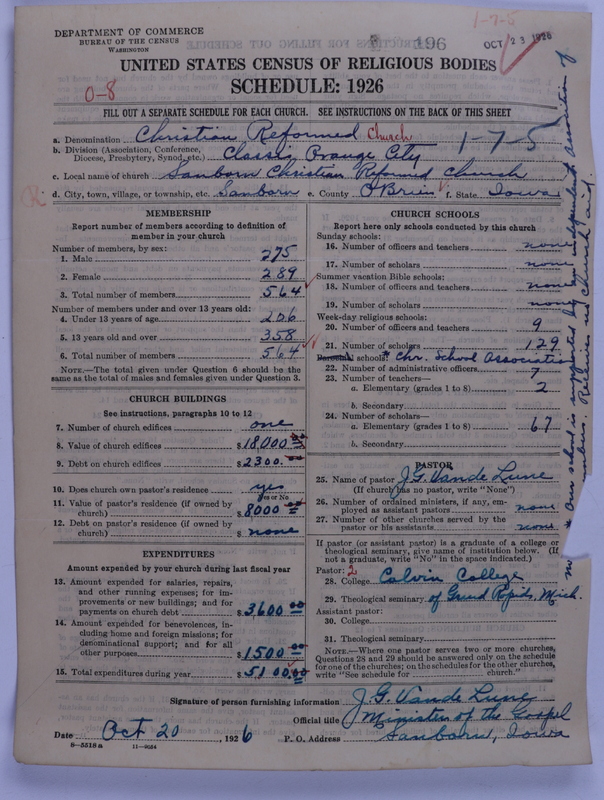 1-7-5
DEPARTMENT OF COMMERCE
BUREAU OF THE CENSUS
WASHINGTON
196
OCT 23 1926
UNITED STATES CENSUS OF RELIGIOUS BODIES
SCHEDULE: 1926
0-8
FILL OUT A SEPARATE SCHEDULE FOR EACH CHURCH. SEE INSTRUCTIONS ON THE BACK OF THIS SHEET
a. Denomination Christian Reformed Church 1-7-5
b. Division (Association, Conference, Diocese, Presbytery, Synod, etc.) Classis Orange City
c. Local name of church Sanborn Christian Reformed Church
d. City, town, village, or township, etc. Sanborn e. County O'Brien f. State Iowa
MEMBERSHIP
Report number of members according to definition of member in your church
Number of members, by sex:
1. Male 275
2. Female 289
3. Total number of members 564
Number of members under and over 13 years old:
4. Under 13 years of age 206
5. 13 years old and over 358
6. Total number of members 564
NOTE.—The total given under Question 6 should be the same as the total of males and females given under Question 3.
CHURCH BUILDINGS
See instructions, paragraphs 10 to 12
7. Number of church edifices one
8. Value of church edifices $18,000.00
9. Debt on church edifices $2300.00
10. Does church own pastor's residence yes
Yes or No
11. Value of pastor's residence (if owned by church) $8000 00
12. Debt on pastor's residence (if owned by church) $ none
EXPENDITURES
Amount expended by your church during last fiscal year
13. Amount expended for salaries, repairs, and other running expenses; for improvements or new buildings; and for payments on church debt $3,600 00
14. Amount expended for benevolences, including home and foreign missions; for denominational support; and for all other purposes $1500 00
15. Total expenditures during year $5100 00
CHURCH SCHOOLS
Report here only schools conducted by this church
Sunday schools:
16. Number of officers and teachers none
17. Number of scholars none
Summer vacation Bible schools:
18. Number of officers and teachers none
19. Number of scholars none
Week-day religious schools:
20. Number of officers and teachers 9
21. Number of scholars 129
Parochial schools: * Chr. School Association
22. Number of administrative officers 7
23. Number of teachers—
a. Elementary (grades 1 to 8) 2
b. Secondary
24. Number of scholars—
a. Elementary (grades 1 to 8) 67
b. Secondary
PASTOR
25. Name of pastor J. G. Vande Lune
(If church has no pastor, write "None")
26. Number of ordained ministers, if any, employed as assistant pastors none
27. Number of other churches served by the pastor or his assistants none
If pastor (or assistant pastor) is a graduate of a college or theological seminary, give name of institution below. (If not a graduate, write "No" in the space indicated.)
Pastor: 2
28. College Calvin College
29. Theological seminary of Grand Rapids, Mich.
Assistant pastor:
30. College
31. Theological seminary
NOTE.—Where one pastor serves two or more churches, Questions 28 and 29 should be answered only on the schedule for one of the churches; on the schedules for the other churches, write "See schedule for church."
* Our school is supported by an independent association of
members. Receives no church aid.
Signature of person furnishing information J. G. Vande Lune
Official title Minister of the Gospel
Date Oct 20, 1926 P. O. Address Sanborn, Iowa
8—5518 a 11—9534